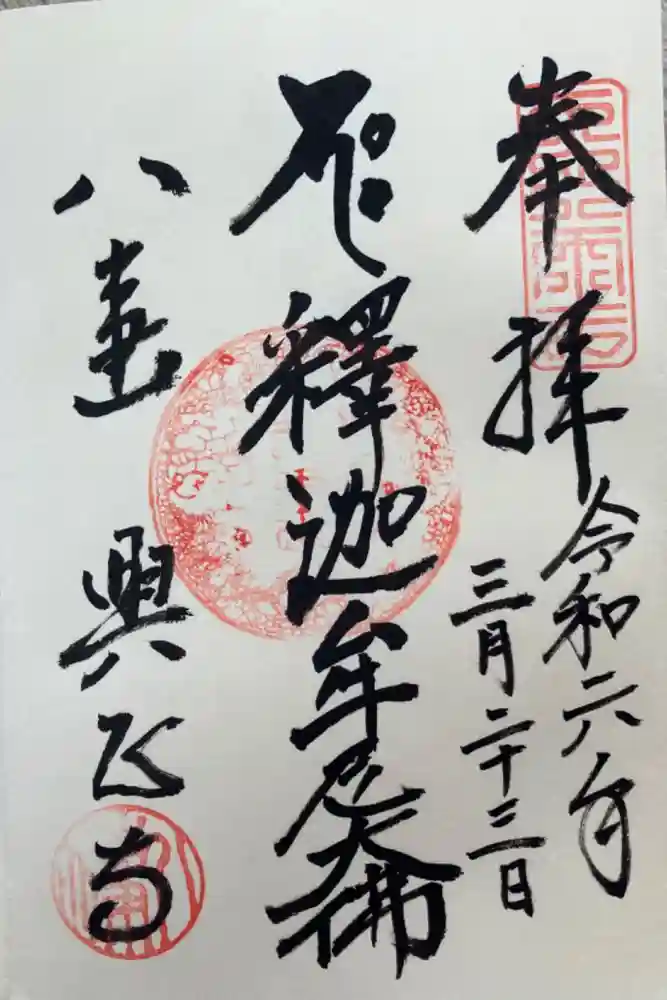 奉拝
令和六年
三月二十三日
釋迦牟尼大佛
八事
興正寺